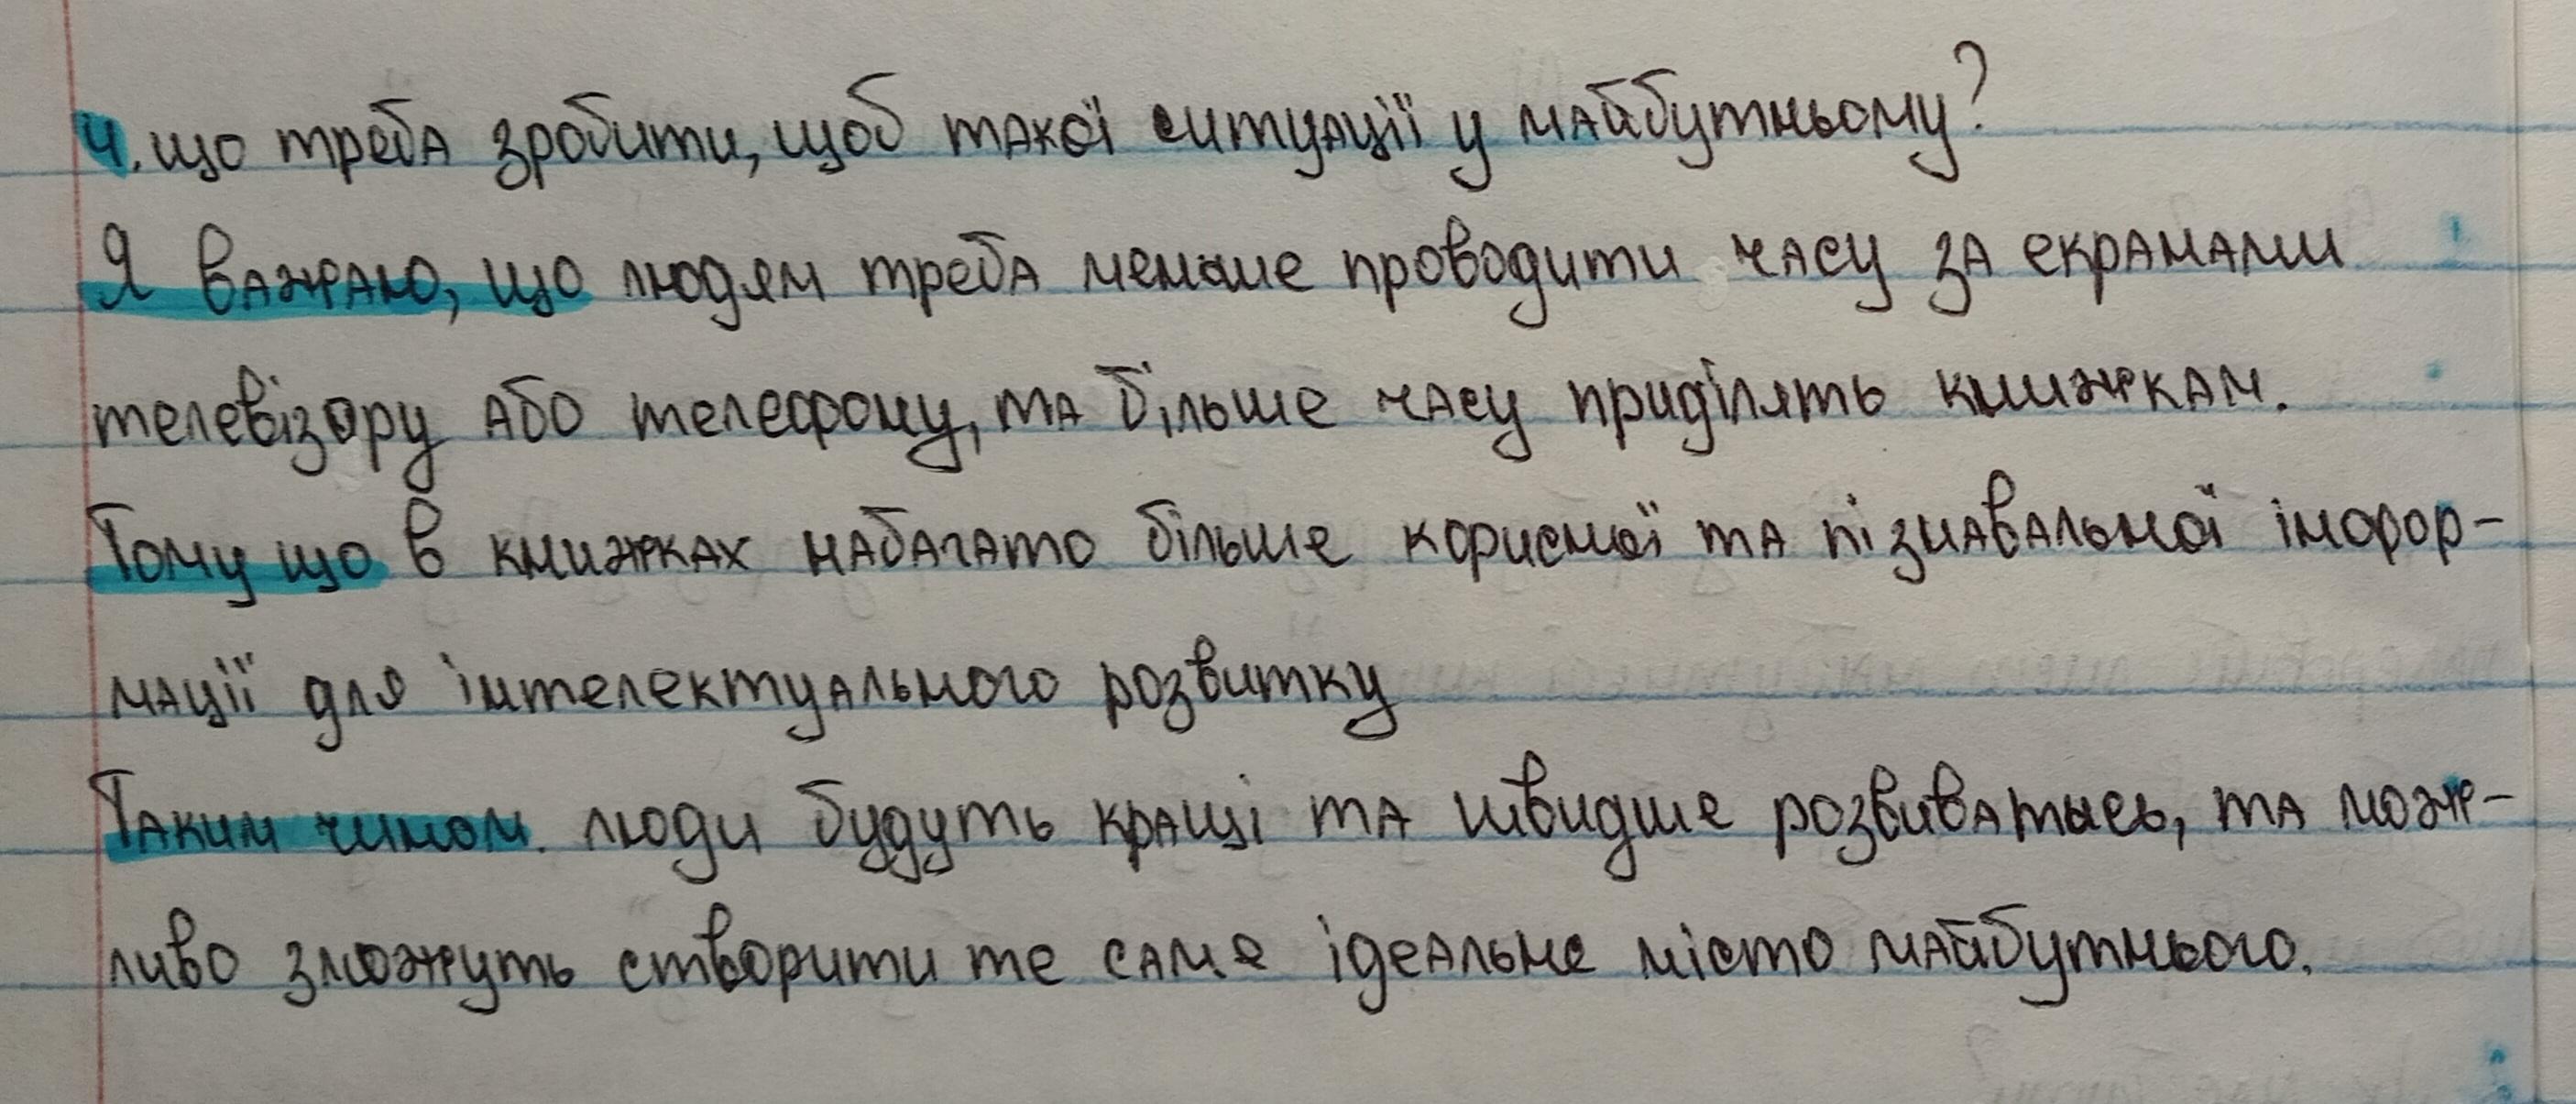 4. що треба зробити, щоб такої ситуації у майбутньому?
Я вважаю, що людям треба менше проводити часу за екранами
телевізору або телефону, та більше часу приділять книжкам.
Тому що в книжках набагато більше корисної та пізнавальної інфор-
мації для інтелектуального розвитку
Таким чином. люди будуть кращі та швидше розвиватись, та мож-
ливо зможуть створити те саме ідеальне місто майбутнього.